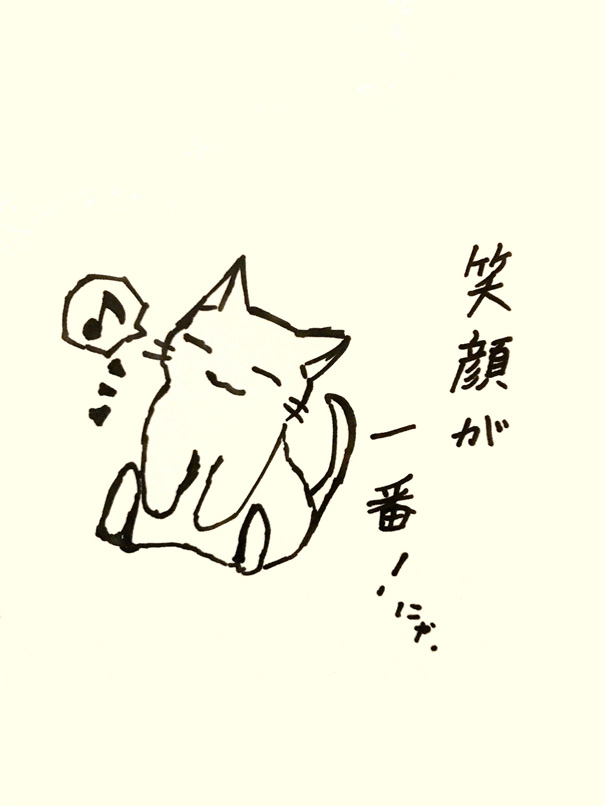 笑顔が
一番！
にゃ.